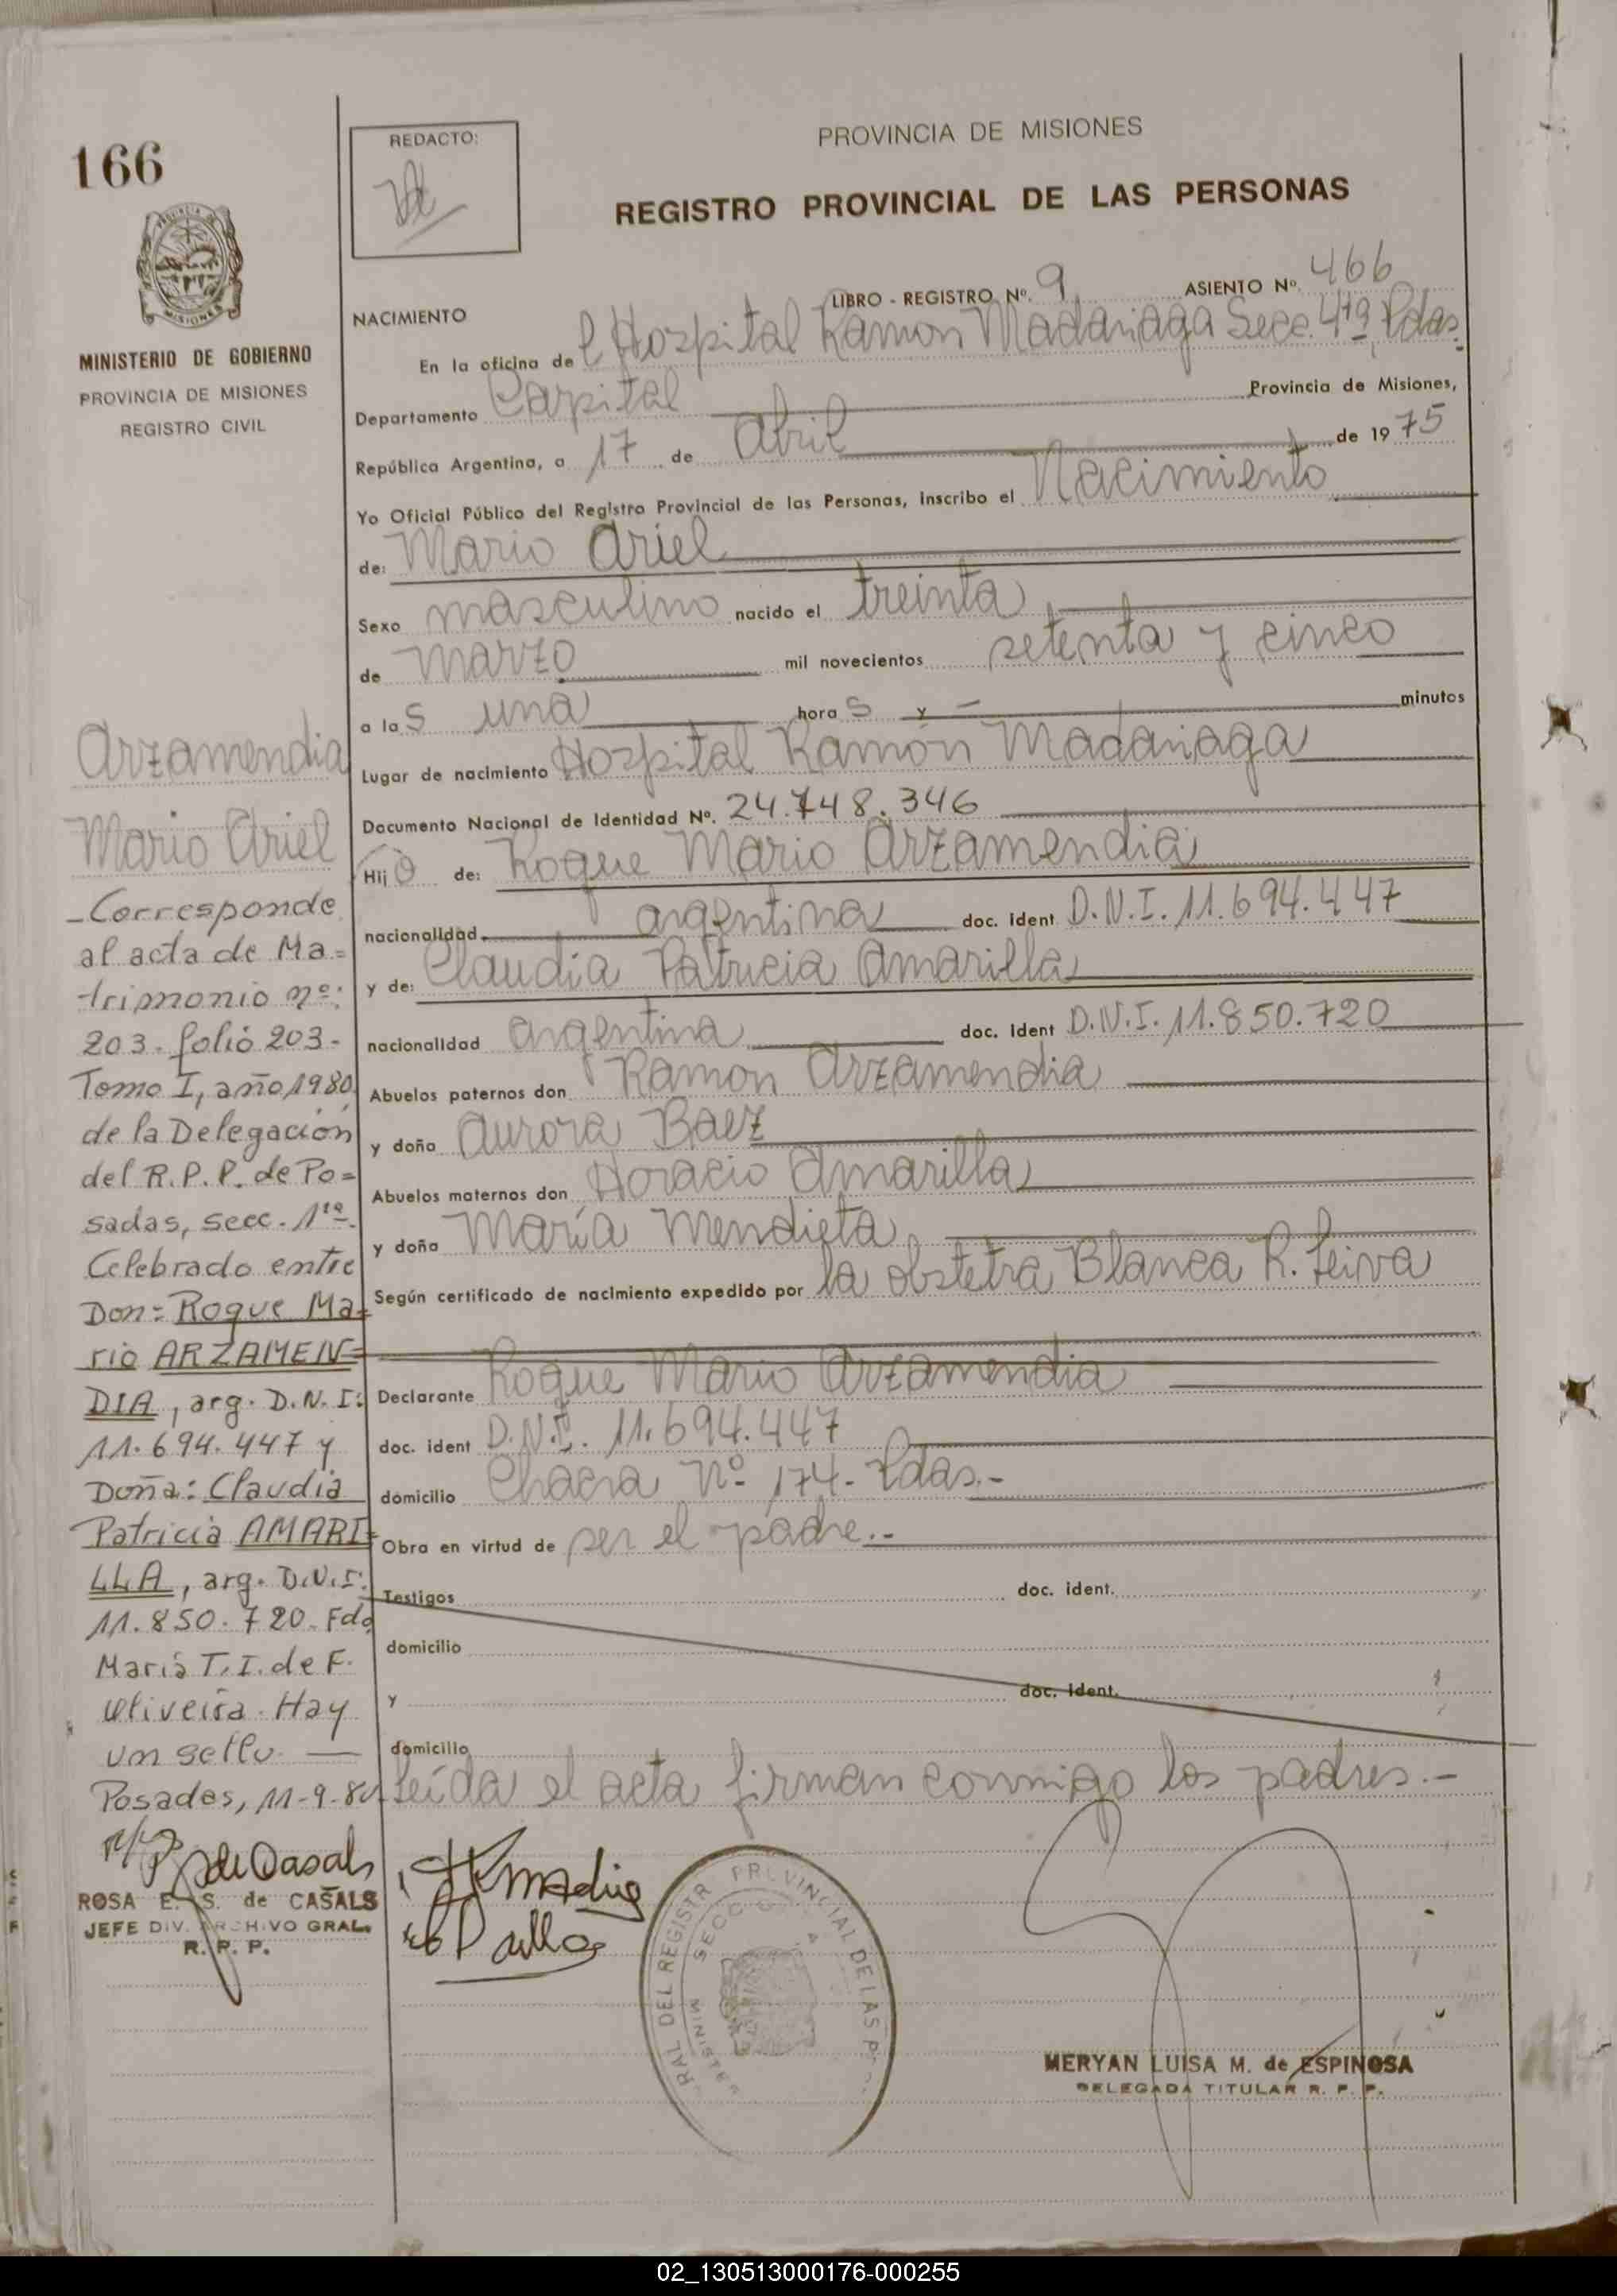 166
REDACTO:
PROVINCIA DE MISIONES
REGISTRO PROVINCIAL DE LAS PERSONAS
MISIONES
MINISTERIO DE GOBIERNO
PROVINCIA DE MISIONES
REGISTRO CIVIL
LIBRO - REGISTRO Nº. 9 ASIENTO Nº. 466
NACIMIENTO
En la oficina de l Hospital Ramon Madariaga Secc. 4ta Pdas.
Departamento Capital Provincia de Misiones,
República Argentina, a 17 de Abril de 1975
Yo Oficial Público del Registro Provincial de las Personas, inscribo el Nacimiento
de: Mario Ariel
Sexo masculino nacido el treinta
de marzo mil novecientos setenta y cinco
a las una horas y — minutos
Lugar de nacimiento Hospital Ramón Madariaga
Documento Nacional de Identidad Nº. 24.748.346
Hijo de: Roque Mario Arzamendia
nacionalidad argentina doc. ident D.N.I. 11.694.447
y de: Claudia Patricia Amarilla
nacionalidad argentina doc. ident D.N.I. 11.850.720
Abuelos paternos don Ramon Arzamendia
y doña Aurora Baez
Abuelos maternos don Horacio Amarilla
y doña María Mendieta
Según certificado de nacimiento expedido por la obstetra Blanca R. Leiva
Declarante Roque Mario Arzamendia
doc. ident D.N.I. 11.694.447
domicilio Chacra Nº 174- Pdas.-
Obra en virtud de ser el padre.-
Testigos doc. ident.
domicilio
y doc. ident.
domicilio
Leída el acta firman conmigo los padres.-
Arzamendia
Mario Ariel
-Corresponde
al acta de Ma=
trimonio nº:
203- folio 203-
Tomo I, año 1980
de la Delegación
del R.P.P. de Po=
sadas, secc. 1ra.
Celebrado entre
Don: Roque Ma=
rio ARZAMEN=
DIA, arg. D.N.I:
11.694.447 y
Doña: Claudia
Patricia AMARI=
LLA, arg. D.N.I:
11.850.720- Fdo
María T. I. de F.
Oliveira. Hay
un sello. —
Posadas, 11-9-80
de Casals
ROSA E. S. de CASALS
JEFE DIV. ARCHIVO GRAL.
R. P. P.
RAL DEL REGISTR PROVINCIAL DE LAS P
SECC
MINISTE
MERYAN LUISA M. de ESPINOSA
DELEGADA TITULAR R. P. P.
02_130513000176-000255